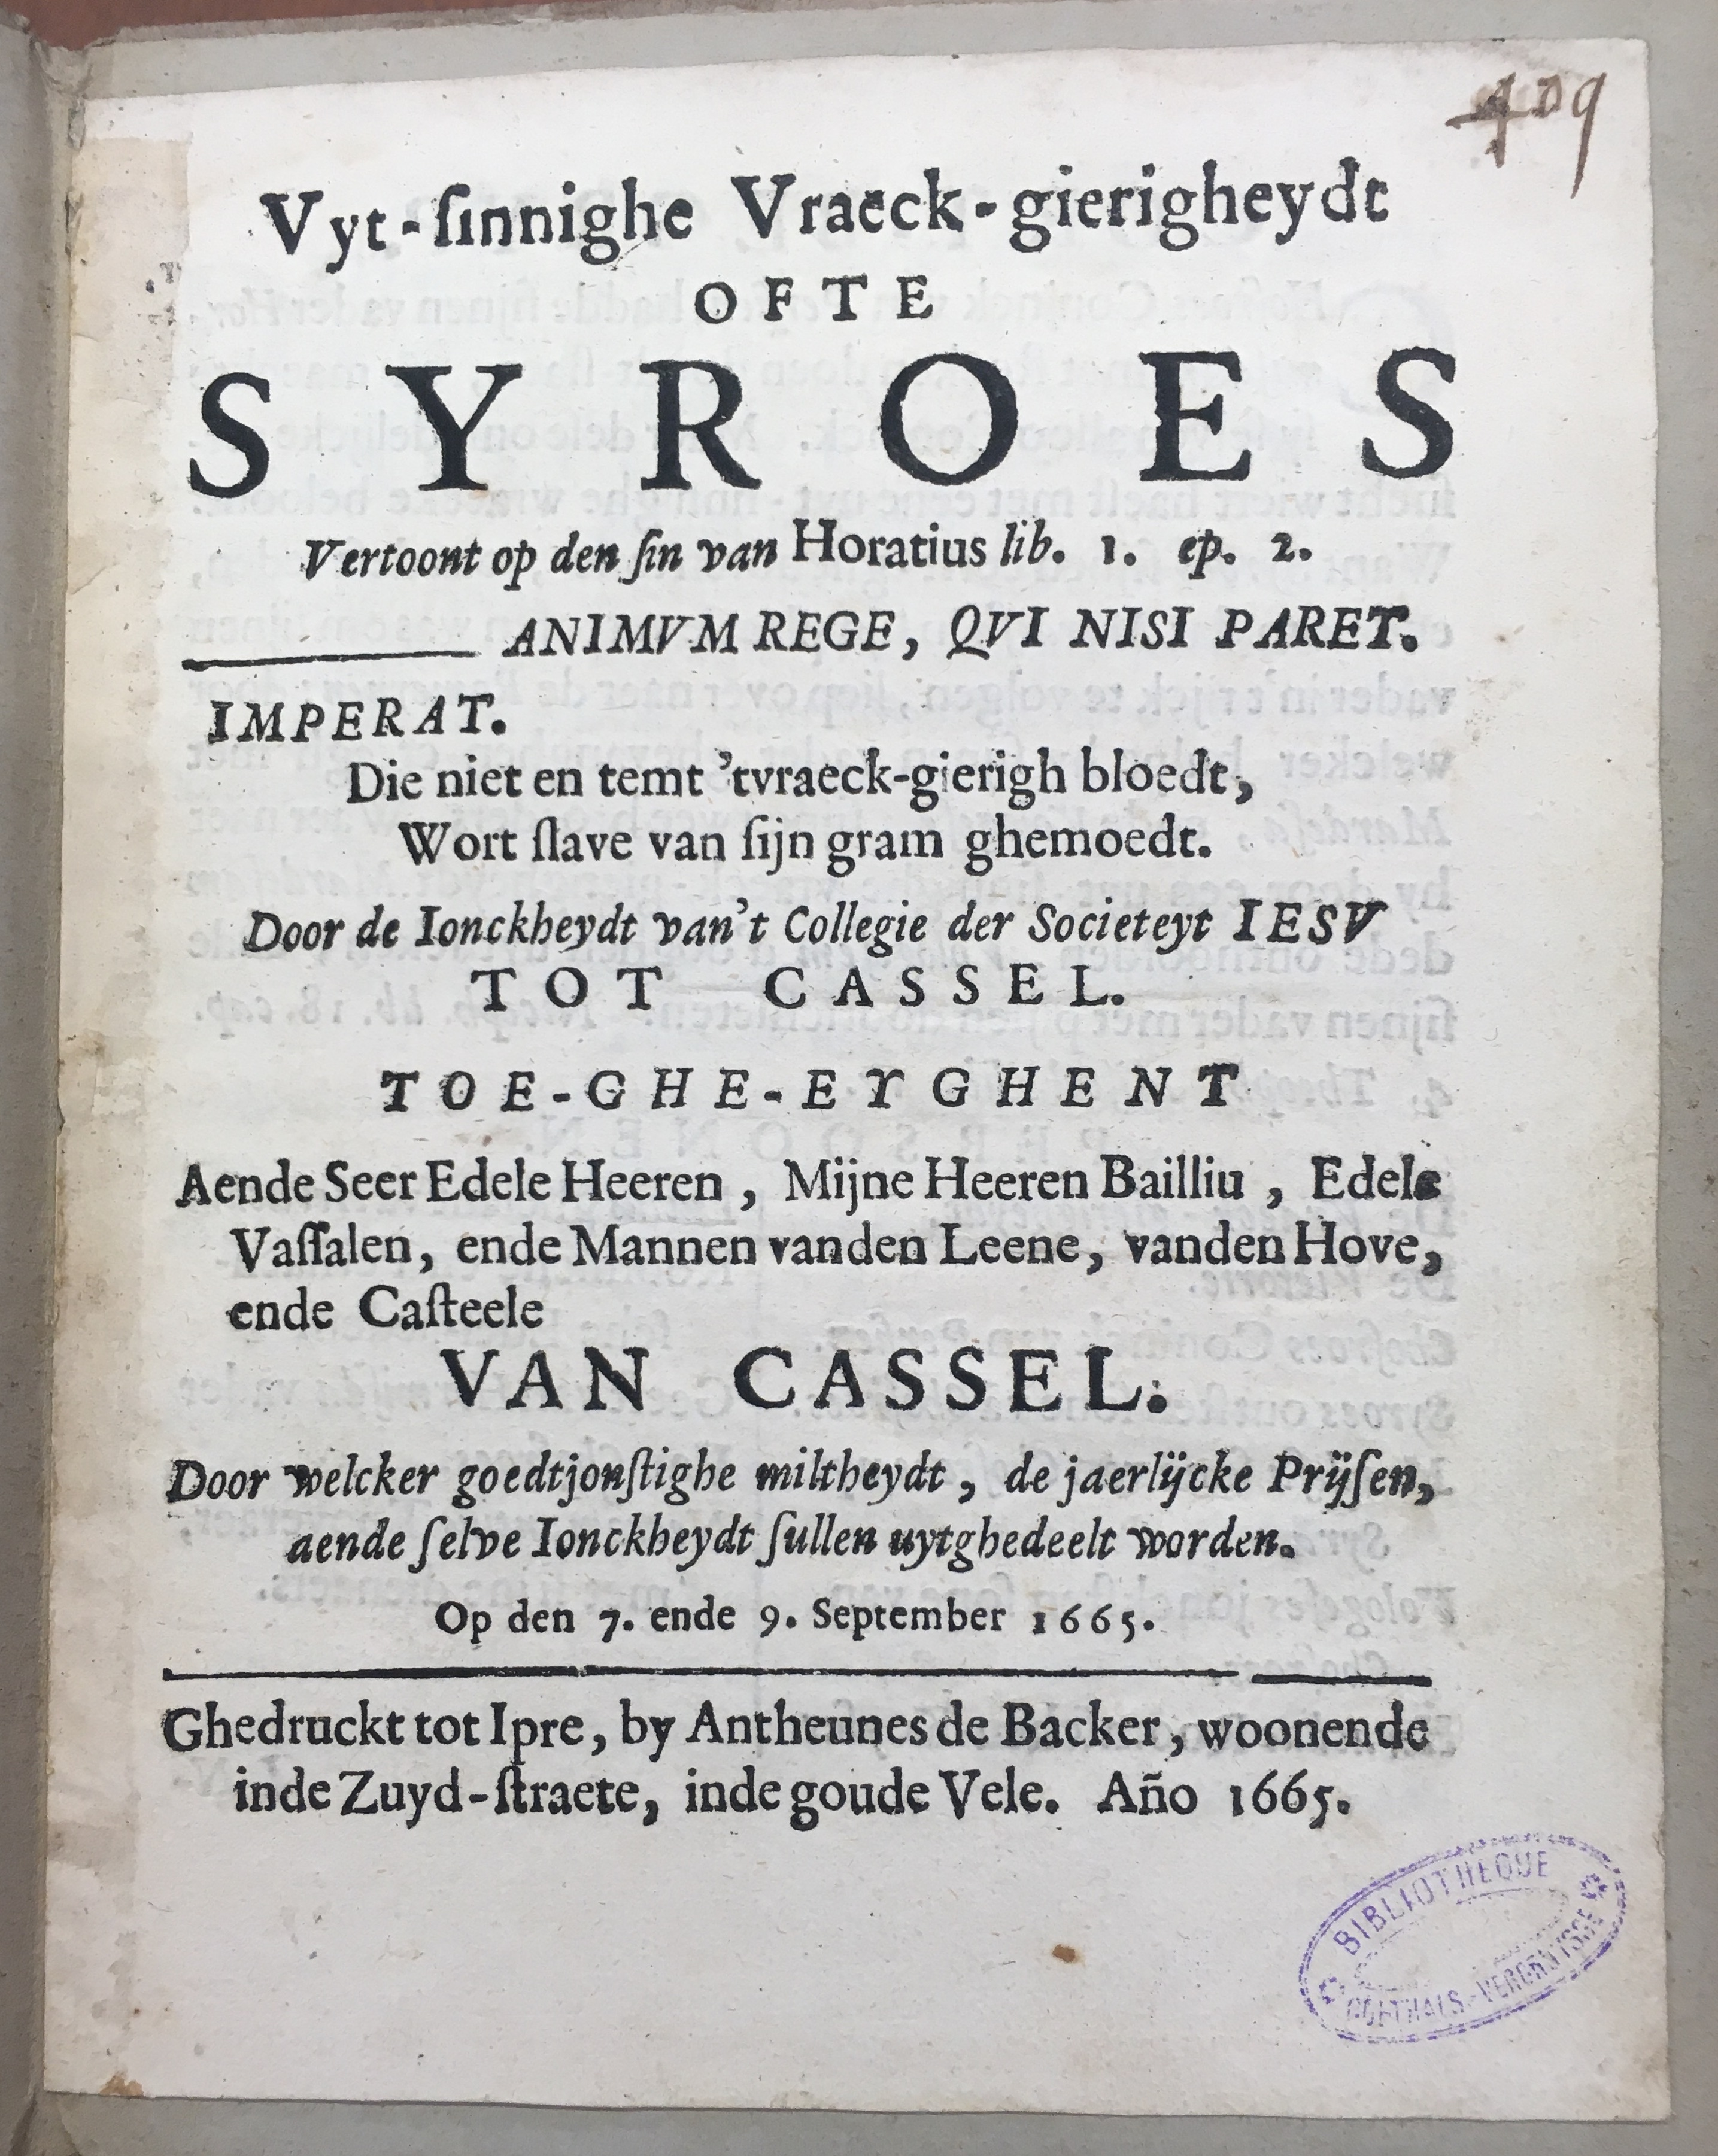 409
Vyt-ſinnighe Vraeck-gierigheydt
OFTE
SYROES
Vertoont op den ſin van Horatius lib. 1. ep. 2.
ANIMVM REGE, QVI NISI PARET.
IMPERAT.
Die niet en temt 'tvraeck-gierigh bloedt,
Wort ſlave van ſijn gram ghemoedt.
Door de Ionckheydt van't Collegie der Societeyt IESV
TOT CASSEL.
TOE-GHE-EYGHENT
Aende Seer Edele Heeren, Mijne Heeren Bailliu, Edele
Vaſſalen, ende Mannen vanden Leene, vanden Hove,
ende Caſteele
VAN CASSEL.
Door welcker goedtjonſtighe miltheydt, de jaerlijcke Prijſen,
aende ſelve Ionckheydt ſullen uytghedeelt worden.
Op den 7. ende 9. September 1665.
Ghedruckt tot Ipre, by Antheunes de Backer, woonende
inde Zuyd-ſtraete, inde goude Vele. Año 1665.
BIBLIOTHEQUE
GOETHALS-VERCRUYSSE